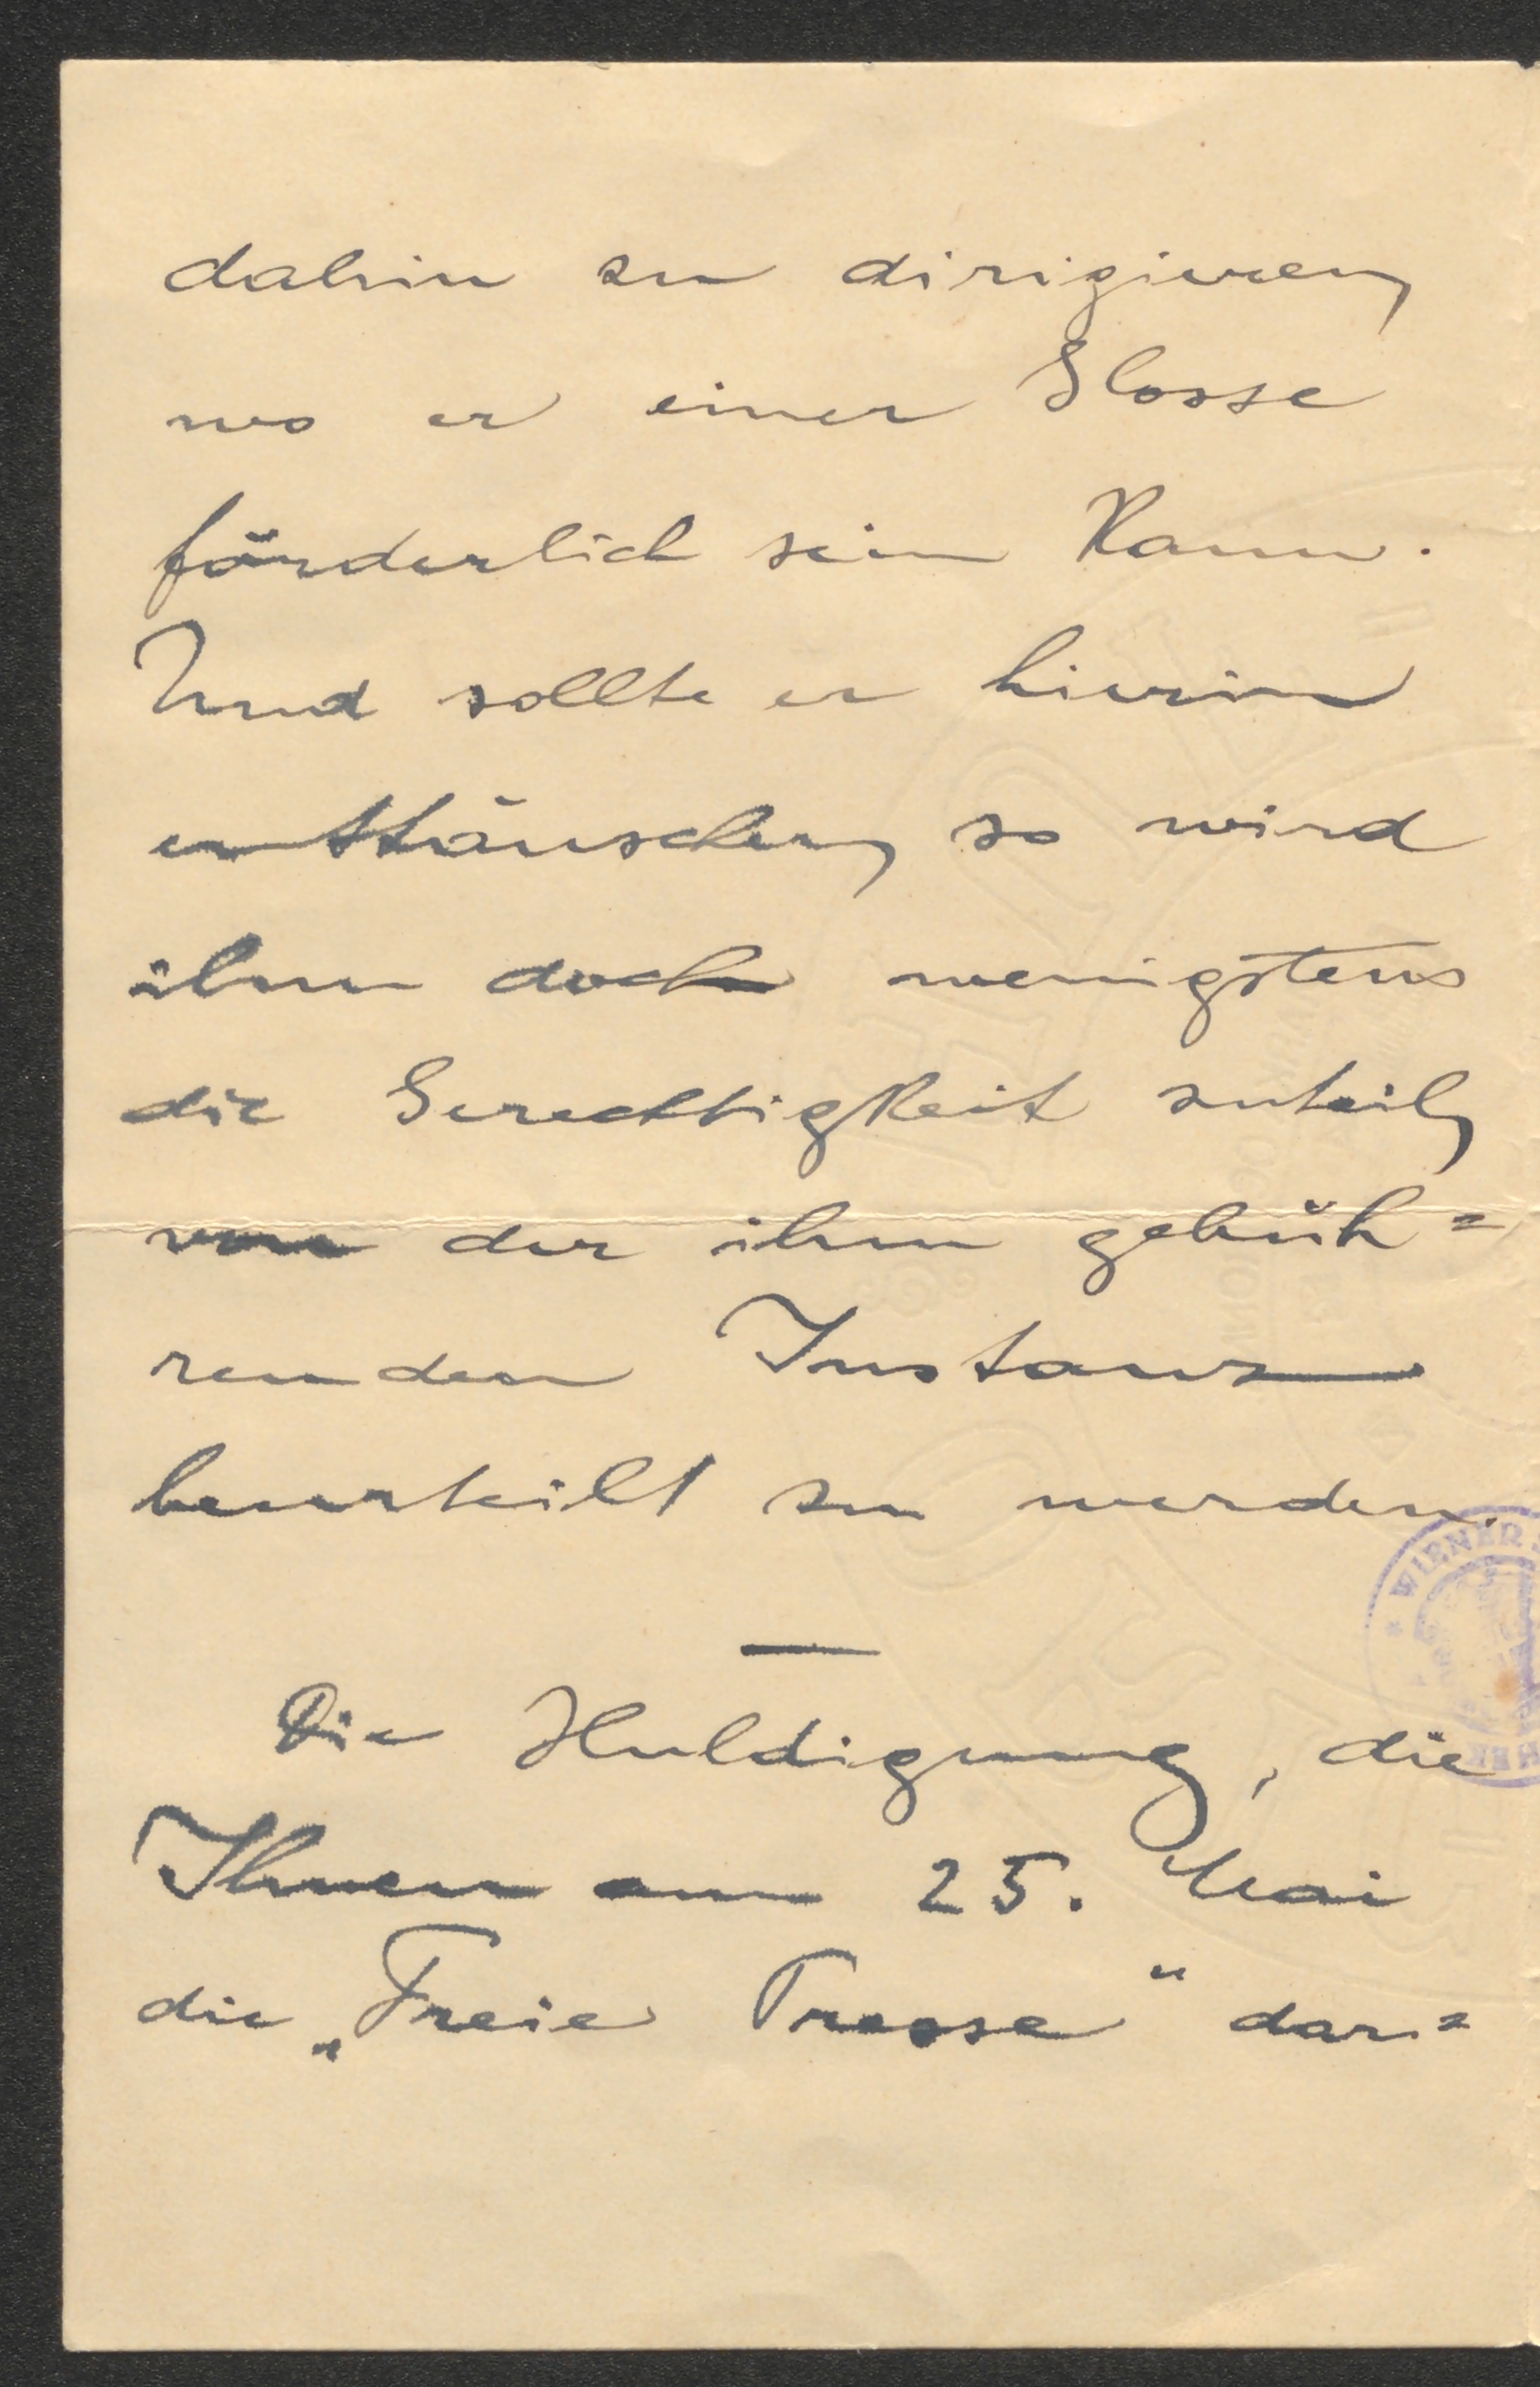 dahin zu dirigieren,
wo er einer Glosse
förderlich sein kann.
Und sollte er hierin
enttäuschen, so wird
ihm doch wenigstens
die Gerechtigkeit zuteil,
von der ihm gebüh=
renden Instanz
beurteilt zu werden.
—
Die Huldigung, die
Ihnen am 25. Mai
die „Freie Presse“ dar=
WIENER